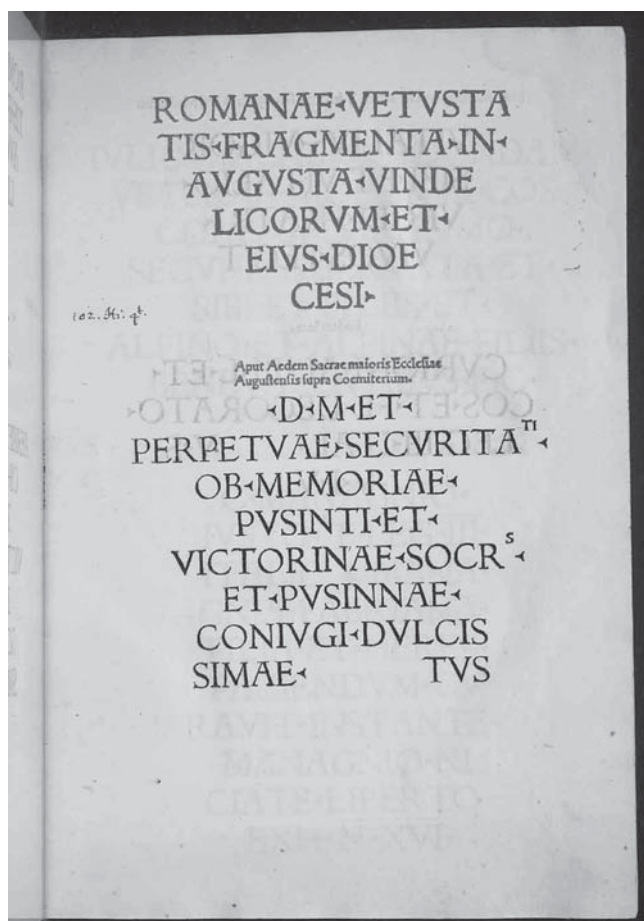 ROMANAE VETVSTA
TIS FRAGMENTA IN
AVGVSTA VINDE
LICORVM ET
EIVS DIOE
CESI
Aput Aedem Sacrae maioris Ecclesiae
Augustensis supra Coemiterium.
D M ET
PERPETVAE SECVRITATI
OB MEMORIAE
PVSINTI ET
VICTORINAE SOCRS
ET PVSINNAE
CONIVGI DVLCIS
SIMAE TVS